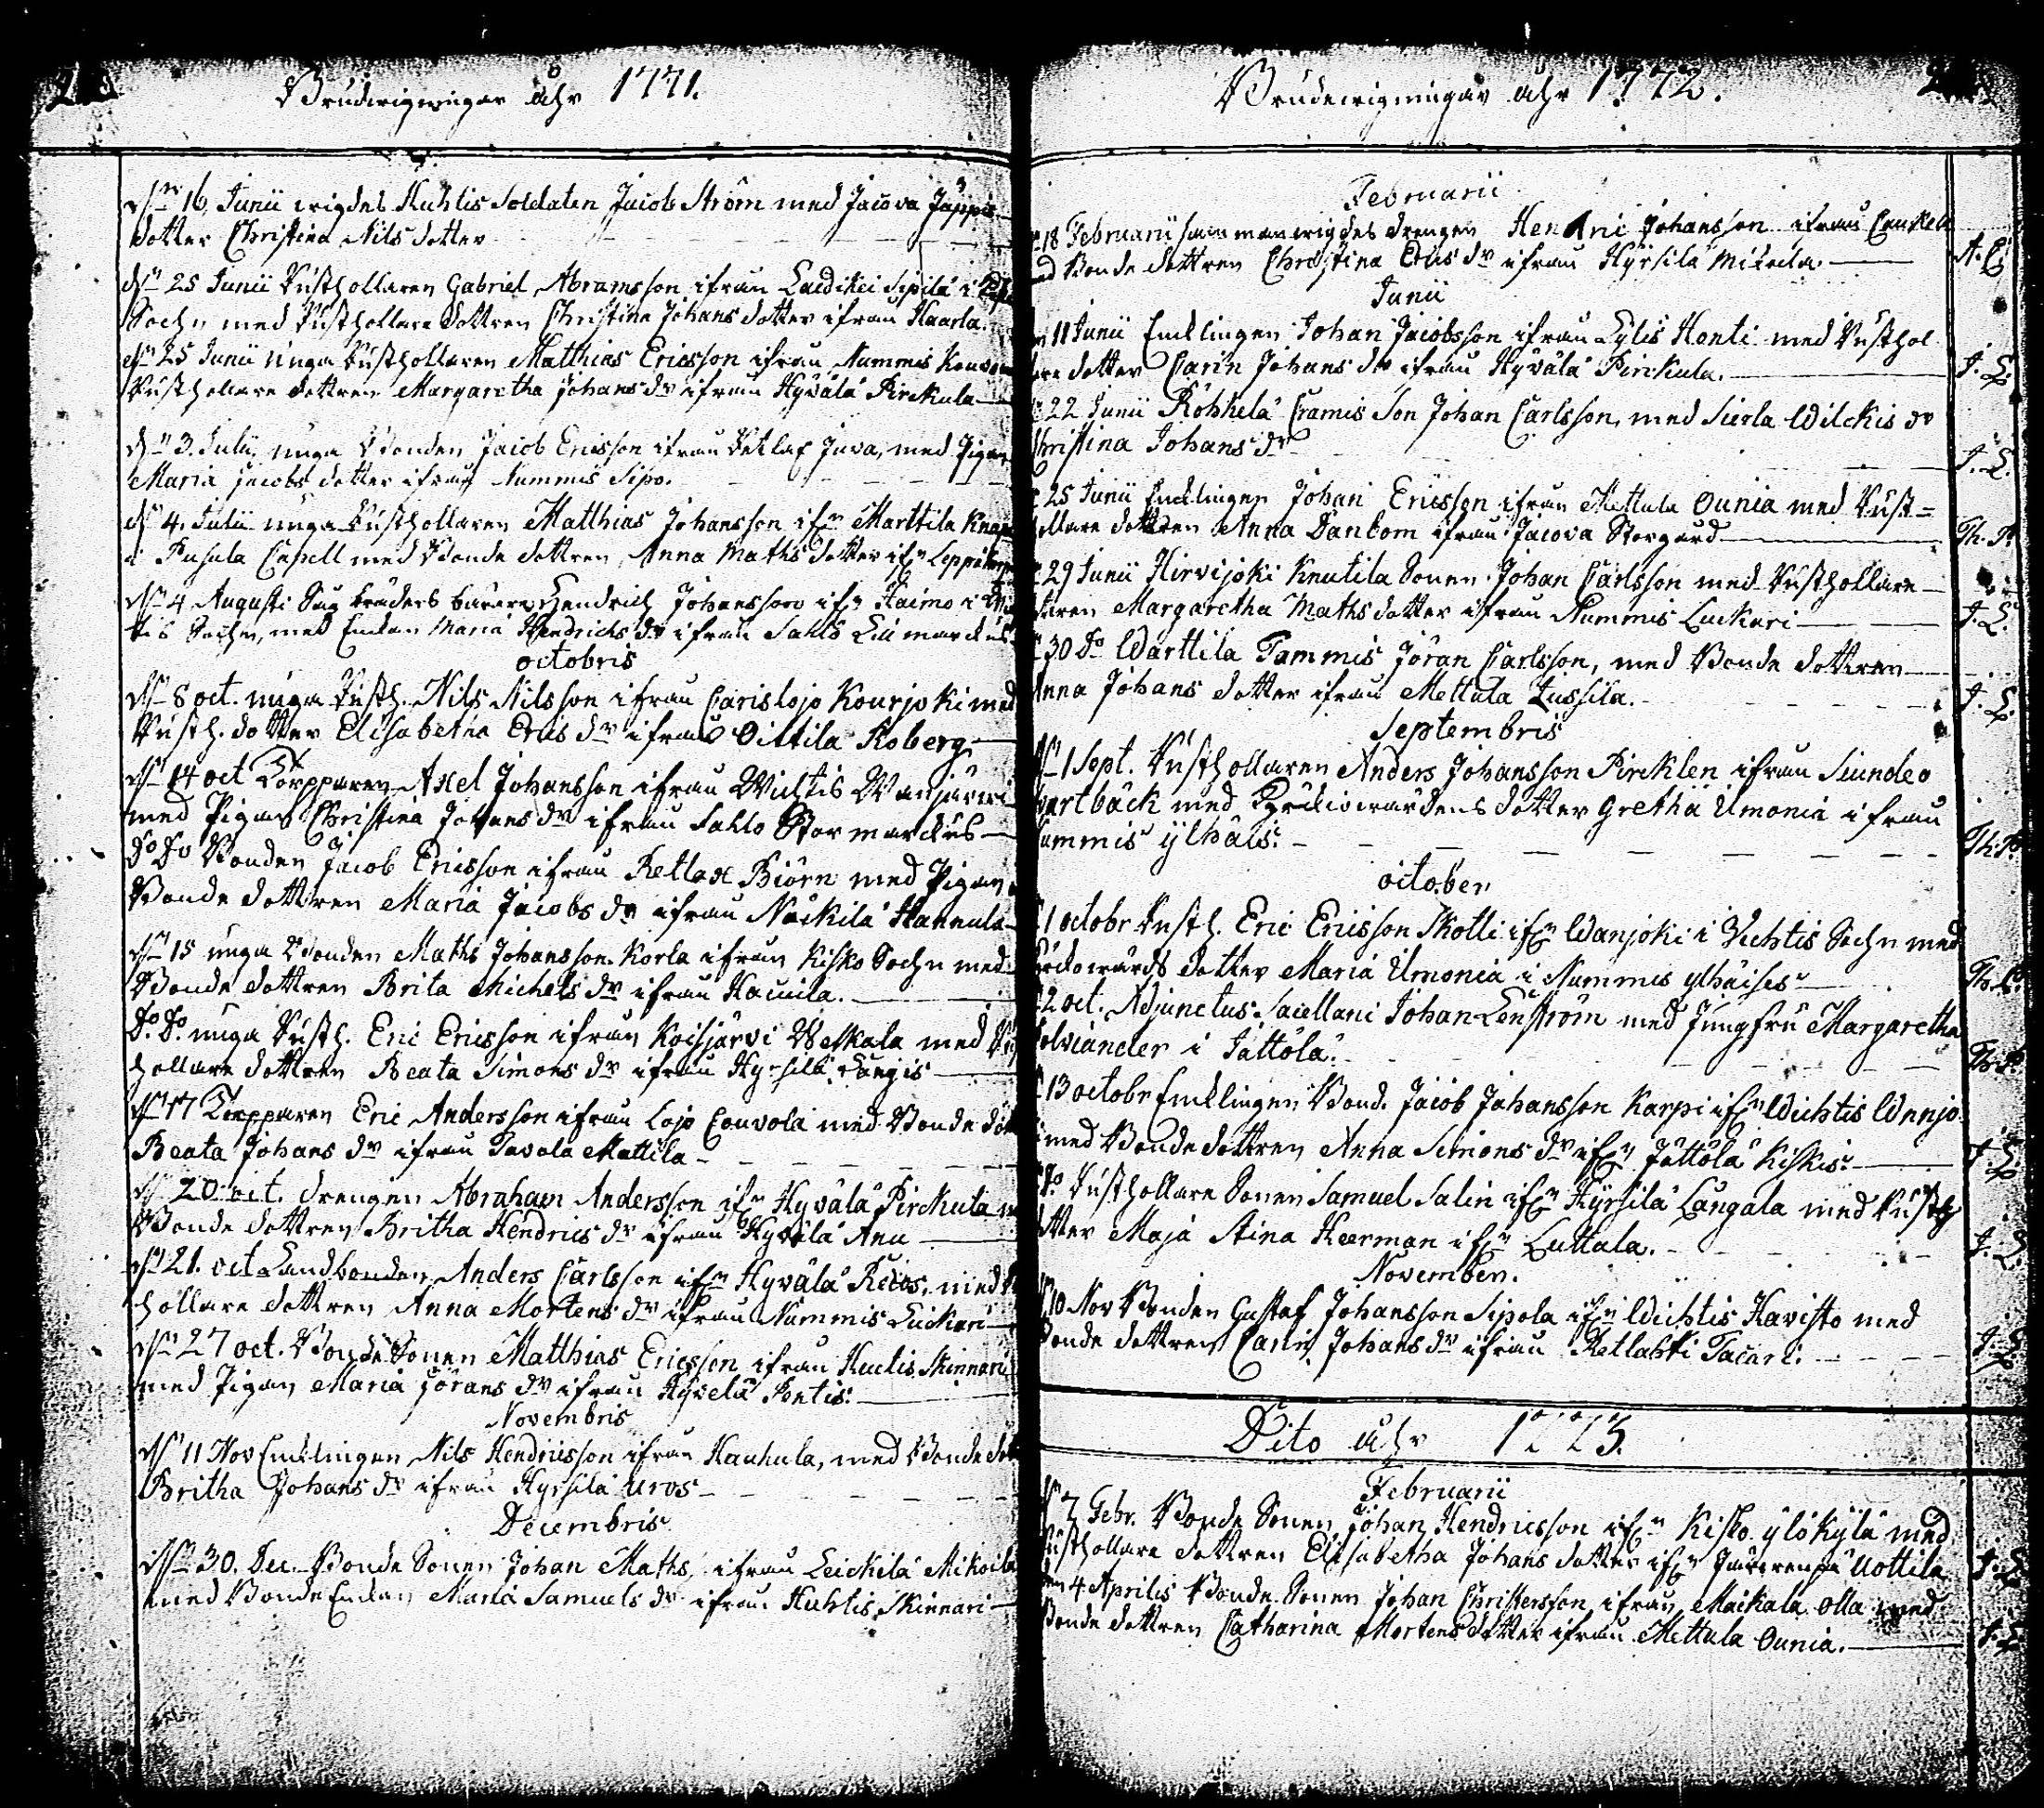 Brudewigningar åhr 1771.
dn 16 Junii wigdes Huhtis Soldaten Jacob Ström med Jacova Jäppis
dotter Christina Nils dotter
dn 25 Junii Rusthollaren Gabriel Abramsson ifrån Laedikei Sipilä i
Sochn med Rusthollare dottren Christina Johans dotter ifrån Haarla.
dn 25 Junii unga Rusthollaren Matthias Ericsson ifrån Nummis
Rusthollare dottren Margaretha Johans dr ifrån Hyvälä Pirckula
dn 3. Julii unga Bonden Jacob Ericsson ifrån Retlax Juva, med Pigan
Maria Jacobs dotter ifrån Nummis Sipo.
dn 4. Julii unga Rusthollaren Matthias Johansson ifn Marttila
i Pusula Capell med Bonde dottren Anna Maths dotter ifn
dn 4 Augusti Hendrich Johansson ifn Haimo i
tis Sochn, med Enckan Maria Hendrichs dr ifrån Sahlo Lillmarckus
octobris
dn 8 oct. unga Rusth. Nils Nilsson ifrån Carislojo Kourjoki med
Rusth. dotter Elisabetha Erics dr ifrån Oittila Roberg
dn 14 oct Torpparen Axel Johansson ifrån Wichtis Wanjärwi
med Pigan Christina Johans dr ifrån Sahlo Stormarckus
Do Do Bonden Jacob Ericsson ifrån Retlax Biörn med Pigan
Bonde dottren Maria Jacobs dr ifrån Näckilä Hannula
dn 15 unga Bonden Maths Johansson Korla ifrån Kisko Sochn med
Bonde dottren Brita Michels dr ifrån Hacuila.
Do. Do. unga Rusth. Eric Ericsson ifrån Koisjärvi Weskala med Rust
hollare dottren Beata Simons dr ifrån Hyrsilä Långis
dn 17 Torpparen Eric Andersson ifrån Lojo Couvola med Bonde dott
Beata Johans dr ifrån Tavola Mattila
dn 20 oct. drengen Abraham Andersson ifn Hyvälä Pirckula
Bonde dottren Britha Hendrics dr ifrån Hyvälä Anu
dn 21. oct Landbonden Anders Carlsson ifn Hyvälä Recos, med
hollare dottren Anna Mortens dr ifrån Nummis Luckari
dn 27 oct. Bonde Sonen Matthias Ericsson ifrån Huctis Skinnari
med Pigan Maria Jörans dr ifrån Hyvelä Pentis.
Novembris
dn 11 Nov Encklingen Nils Hendricsson ifrån Hauhula, med Bonde dott
Britha Johans dr ifrån Hyrsilä Uros
Decembris
dn 30. Dec. Bonde Sonen Johan Maths. ifrån Leickilä Mikoila
med Bonde Enckan Maria Samuels dr ifrån Huhtis Skinnari
Brudewigningar åhr 1772.
Februarii
18 Februarii sammanwigdes drengen Hendric Johansson ifrån
med Bonde dottren Christina Erics dr ifrån Hyrsilä Mickela
Junii
11 Junii Encklingen Johan Jacobsson ifrån Lylis Henti med Rusthol
lare dotter Carin Johans dr ifrån Hyvälä Pirckula.
J. L.
22 Junii Röhkelä Cramis Son Johan Carlsson, med Sierla Wilckis dr
Christina Johans dr
J. L.
25 Junii Encklingen Johan Ericsson ifrån Mettula Ounia med Rust=
hollare dottren Anna Danbom ifrån Jacova Storgård
Th. P.
29 Junii Hirvijoki Knutila Sonen Johan Carlsson med Rusthollare
dottren Margaretha Maths dotter ifrån Nummis Luckari
J. L.
30 Do Warttila Tammis Jöran Carlsson, med Bonde dottren
Anna Johans dotter ifrån Mettula Jussila.
J. L.
Septembris
dn 1 Sept. Rusthollaren Anders Johansson Pircklen ifrån Siundeo
Svartbäck med Kyrkiowärdens dotter Gretha Ilmonia ifrån
Nummis ylhäis.
Th. P.
october
1 octobr Rusth. Eric Ericsson Skotti ifn Wanjoki i Vichtis Sochn med
Kyrckowärds dotter Maria Ilmonia i Nummis ylhäises
2 oct. Adjunctus Sacellani Johan Lenström med Jungfru Margaretha
Polviander i Jättölä.
13 octobr Encklingen Bond. Jacob Johansson Karpi ifn Wichtis Wanjo
med Bonde dottren Anna Simons dr ifn Jättölä Kiskis
J. L.
Do Rusthollare Sonen Samuel Salin ifn Hyrsilä Långala med Rusth
dotter Maja Stina Heerman ifn Luttala.
J. L.
November.
10 Nov Bonden Gustaf Johansson Sipola ifn Wichtis Havisto med
Bonde dottren Carin Johans dr ifrån Retlahti Tacari.
J. L.
Dito åhr 1773.
Februarii
7 Febr. Bonde Sonen Johan Hendricsson ifn Kisko ylökylä med
Rusthollare dottren Elisabetha Johans dotter ifn Jäverenpä Uottila
J. L.
den 4 Aprilis Bonde Sonen Johan Christersson ifrån Maikala Olla med
Bonde dottren Catharina Mortens dotter ifrån Mettula Ounia.
J. L.